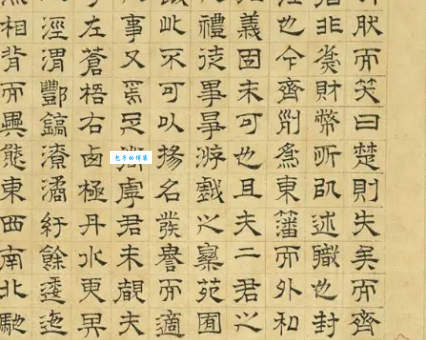 肰而笑曰楚則失矣而齊
非爲財幣所㠯述職也封
淫也今齊列爲東藩而外和
義固未可也且夫二君之
禮徒事爭游戲之樂苑囿
此不可以揚名發譽而適
事又焉足虖君未覩夫
左蒼梧右卥極丹水更其
涇渭酆鎬潦潏紆餘逶迤
相背而異態東西南北馳